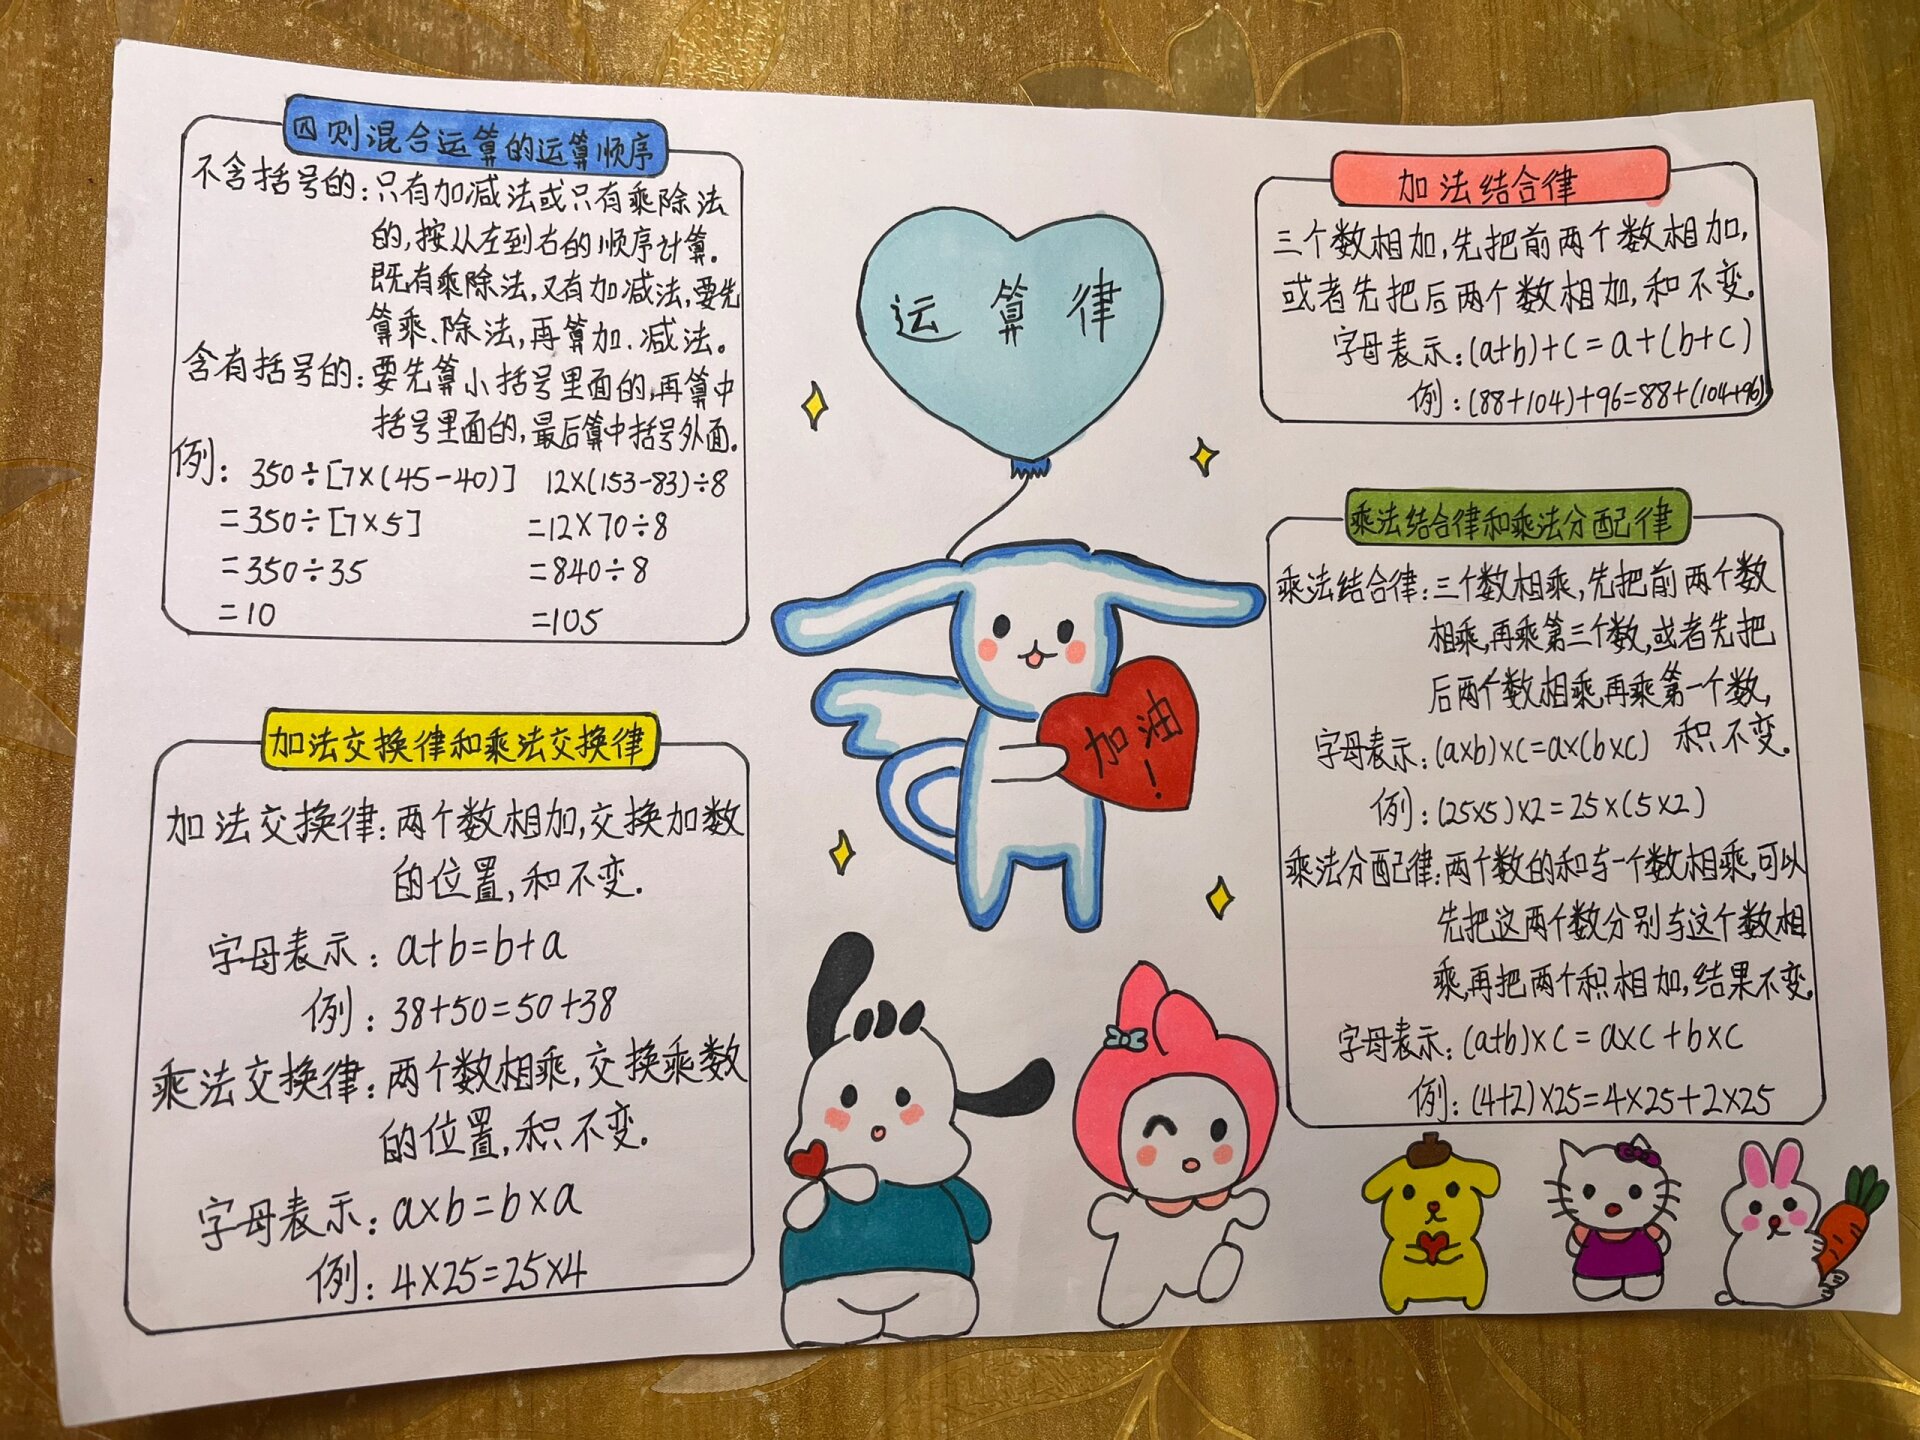 四则混合运算的运算顺序
不含括号的:只有加减法或只有乘除法
的,按从左到右的顺序计算.
既有乘除法,又有加减法,要先
算乘、除法,再算加、减法。
含有括号的:要先算小括号里面的,再算中
括号里面的,最后算中括号外面.
例: 350÷[7×(45-40)] 12×(153-83)÷8
=350÷[7×5] =12×70÷8
=350÷35 =840÷8
=10 =105
加法交换律和乘法交换律
加法交换律:两个数相加,交换加数
的位置,和不变.
字母表示:a+b=b+a
例:38+50=50+38
乘法交换律:两个数相乘,交换乘数
的位置,积不变.
字母表示:a×b=b×a
例:4×25=25×4
运算律
加油
!
加法结合律
三个数相加,先把前两个数相加,
或者先把后两个数相加,和不变.
字母表示:(a+b)+c=a+(b+c)
例:(88+104)+96=88+(104+96)
乘法结合律和乘法分配律
乘法结合律:三个数相乘,先把前两个数
相乘,再乘第三个数,或者先把
后两个数相乘,再乘第一个数,
积不变.
字母表示:(a×b)×c=a×(b×c)
例:(25×5)×2=25×(5×2)
乘法分配律:两个数的和与一个数相乘,可以
先把这两个数分别与这个数相
乘,再把两个积相加,结果不变.
字母表示:(a+b)×c=a×c+b×c
例:(4+2)×25=4×25+2×25